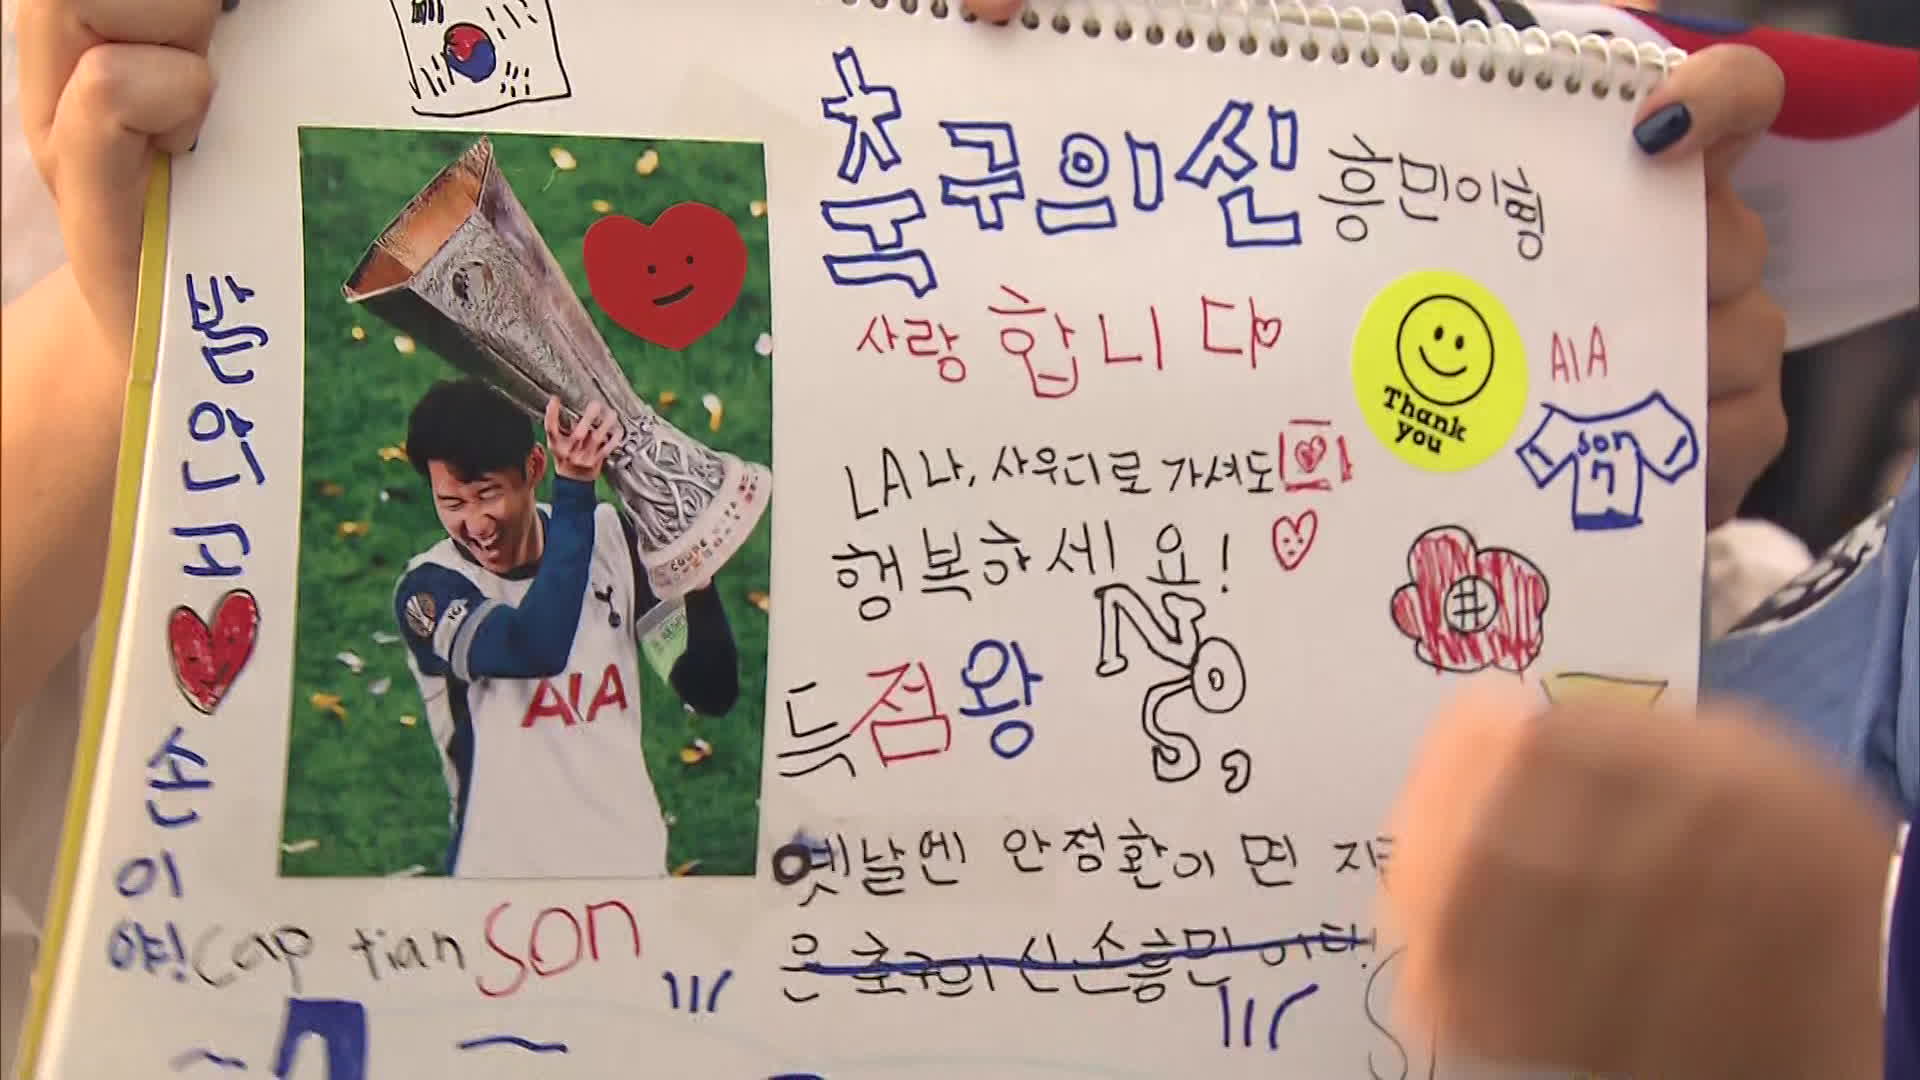 축구의신 흥민이형
사랑합니다
Thank
you
AIA
son
7
LA나, 사우디로 가셔도
행복하세요!
득점왕
AIA
옛날엔 안정환이 면 지금
은 축구의 신 손흥민이다!
신이야!
captian SON
7